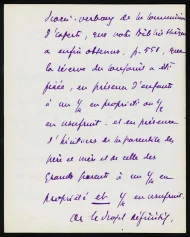 verbaux de la Commission
que notre Bibliothèque
a enfin obtenus, p. 551, que
la réserve du conjoint a été
fixée, en présence d'enfants
à un 1/4 en propriété ou 1/2
en usufruit. et en présence
d'héritiers de la parentèle des
père et mère et de celle des
grands parents à un 1/4 en
propriété et 1/4 en usufruit.
Or le projet définitif,